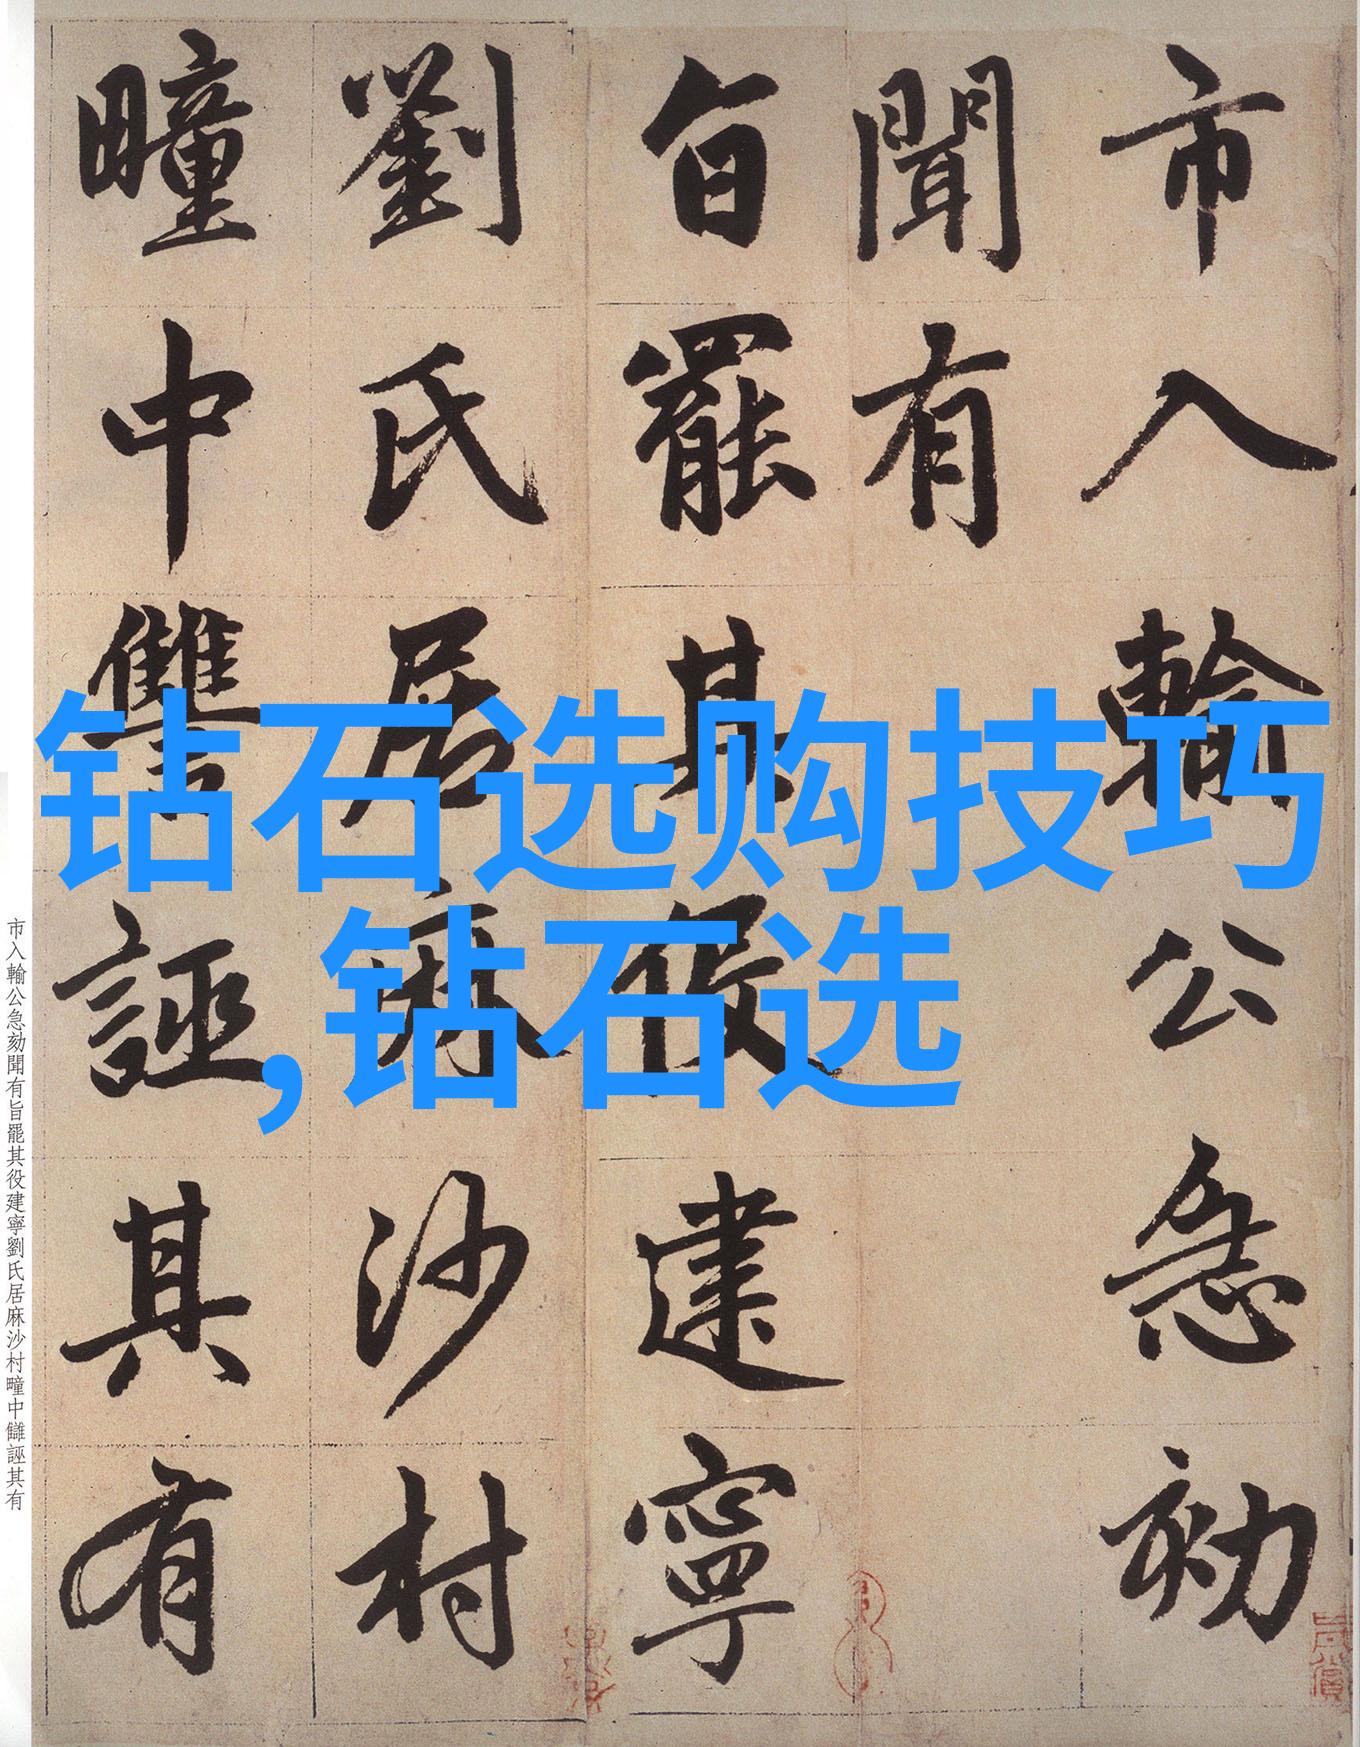 市入輸公急劾
聞有
旨罷其役建寧
劉氏居麻沙村
疃中讐誣其有
钻石选购技巧
,钻石选
市入輸公急劾聞有旨罷其役建寧劉氏居麻沙村疃中讎誣其有